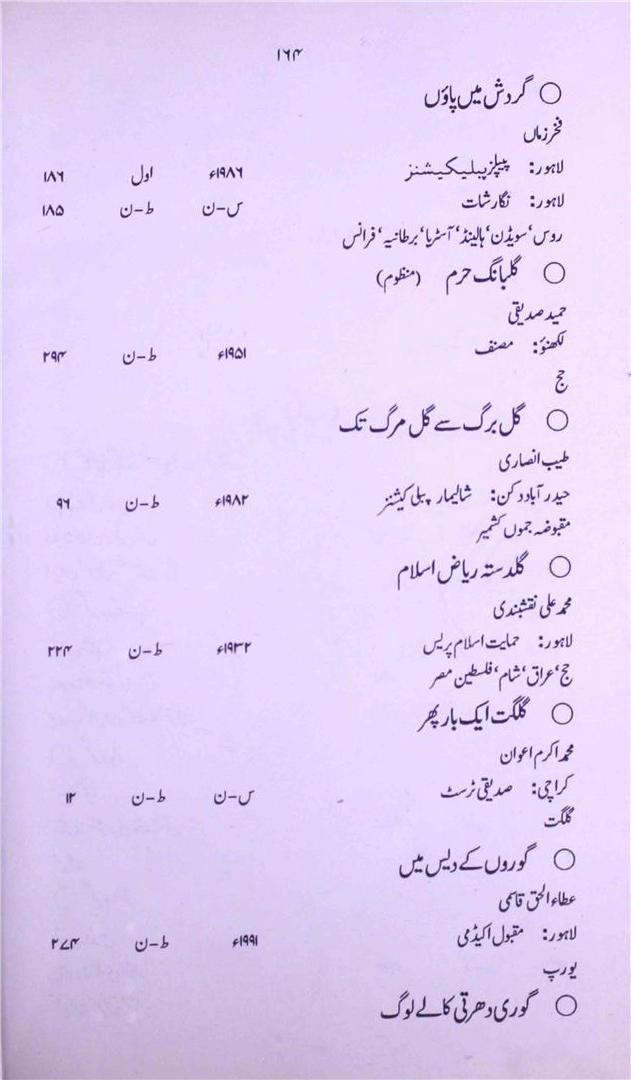 ۱۶۴
○ گردش میں پاؤں
فخر زماں
لاہور: پیپلز پبلیکیشنز ۱۹۸۶ء اول ۱۸۶
لاہور: نگارشات س-ن ط-ن ۱۸۵
روس، سویڈن، ہالینڈ، آسٹریا، برطانیہ، فرانس
○ گلبانگ حرم (منظوم)
حمید صدیقی
لکھنؤ: مصنف ۱۹۵۱ء ط-ن ۲۹۴
حج
○ گل برگ سے گل مرگ تک
طیب انصاری
حیدر آباد دکن: شالیمار پبلی کیشنز ۱۹۸۲ء ط-ن ۹۶
مقبوضہ جموں کشمیر
○ گلدستہ ریاض اسلام
محمد علی نقشبندی
لاہور: حمایت اسلام پریس ۱۹۳۲ء ط-ن ۲۲۴
حج، عراق، شام، فلسطین مصر
○ گلگت ایک بار پھر
محمد اکرم اعوان
کراچی: صدیقی ٹرسٹ س-ن ط-ن ۱۲
گلگت
○ گوروں کے دیس میں
عطاء الحق قاسمی
لاہور: مقبول اکیڈمی ۱۹۹۱ء ط-ن ۲۷۴
یورپ
○ گوری دھرتی کالے لوگ